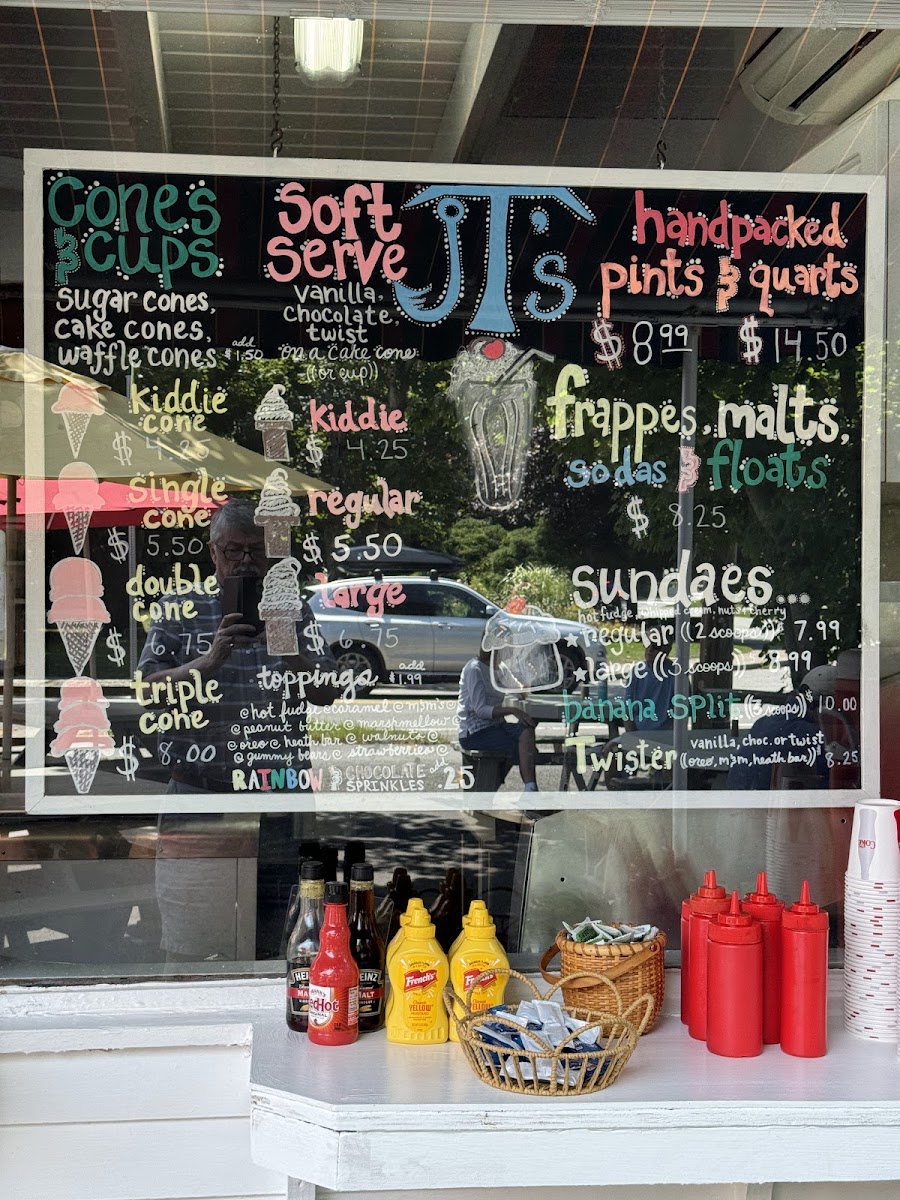 Cones
& Cups
Sugar cones,
cake cones,
waffle cones add $1.50
kiddie
cone
$4.25
single
cone
$5.50
double
cone
$6.75
triple
cone
$8.00
Soft
Serve
vanilla,
chocolate,
twist
on a cake cone
((or cup))
kiddie
$4.25
regular
$5.50
large
$6.75
toppings add $1.99
hot fudge caramel m&m's
peanut butter marshmellow
oreo heath bar walnuts
gummy bears strawberries
RAINBOW & CHOCOLATE
SPRINKLES add .25
JT's
handpacked
pints & quarts
$8.99 $14.50
frappes, malts,
sodas & floats
$8.25
Sundaes...
hot fudge, whipped cream, nuts & cherry
regular ((2 scoops)) $7.99
large ((3 scoops)) $8.99
banana split ((3 scoops)) $10.00
Twister vanilla, choc. or twist
((oreo, m&m, heath bar)) $8.25
HEINZ
MALT
RedHot
French's
YELLOW
French's
YELLOW
Coke